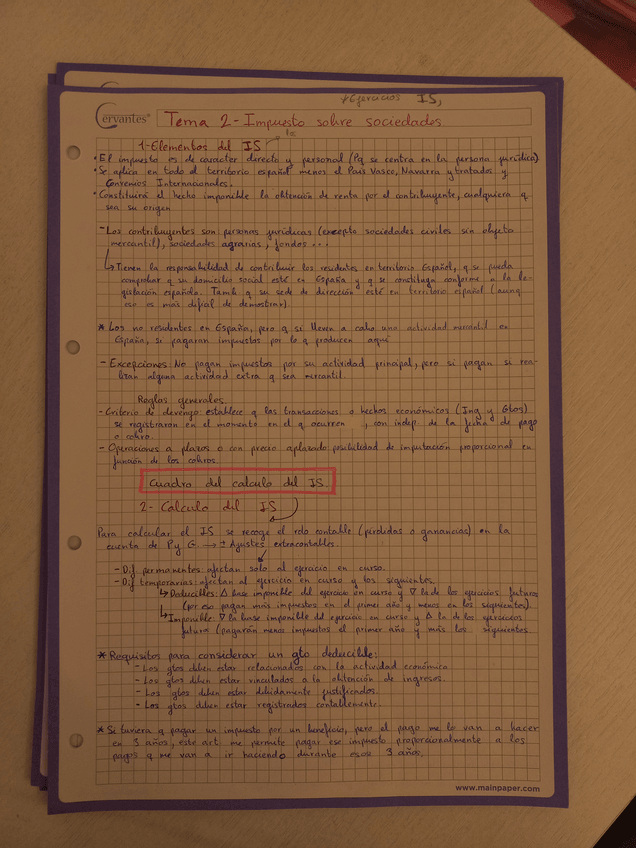 * Ejercicios IS,
Cervantes®
Tema 2 - Impuesto sobre sociedades
1-Elementos del IS
• El impuesto es de caracter directo y personal (Pq se centra en la persona jurídica)
• Se aplica en todo el territorio español menos el País Vasco, Navarra y tratados y
Convenios Internacionales.
• Constituirá el hecho imponible la obtención de renta por el contribuyente, cualquiera q
sea su origen
- Los contribuyentes son personas jurídicas (excepto sociedades civiles sin objeto
mercantil), sociedades agrarias, fondos ...
↳ Tienen la responsabilidad de contribuir los residentes en territorio Español, q se pueda
comprobar q su domicilio social esté en España y q se constituyan conforme a la le-
gislación española. Tamb q su sede de dirección esté en territorio español (aunq
eso es más difícil de demostrar).
* Los no residentes en España, pero q si lleven a cabo una actividad mercantil en
España, si pagaran impuestos por lo q producen aquí
- Excepciones: No pagan impuestos por su actividad principal, pero si pagan si rea-
lizan alguna actividad extra q sea mercantil.
Reglas generales.
- Criterio de devengo: establece q las transacciones o hechos económicos (Ing y Gtos)
se registraron en el momento en el q ocurren, con indep. de la fecha de pago
o cobro.
- Operaciones a plazos o con precio aplazado posibilidad de imputación proporcional en
función de los cobros.
Cuadro del calculo del IS
2- Calculo del IS
Para calcular el IS se recoge el rdo contable (pérdidas o ganancias) en la
cuenta de P y G. → ± Ajustes extracontables
- Dif permanentes: afectan solo al ejercicio en curso.
- Dif temporarias: afectan al ejercicio en curso y los siguientes.
↳ Deducibles: Δ base imponible del ejercicio en curso y ∇ la de los ejercicios futuros
(por eso pagan más impuestos en el primer año y menos en los siguientes).
↳ Imponible: ∇ la base imponible del ejercicio en curso y Δ la de los ejercicios
futuro (pagarán menos impuestos el primer año y más los siguientes
* Requisitos para considerar un gto deducible:
- Los gtos deben estar relacionados con la actividad económica
- Los gtos deben estar vinculados a la obtención de ingresos.
- Los gtos deben estar debidamente justificados.
- Los gtos deben estar registrados contablemente.
* Si tuviera q pagar un impuesto por un beneficio, pero el pago me lo van a hacer
en 3 años, este art. me permite pagar ese impuesto proporcionalmente a los
pagos q me van a ir haciendo durante esos 3 años.
www.mainpaper.com